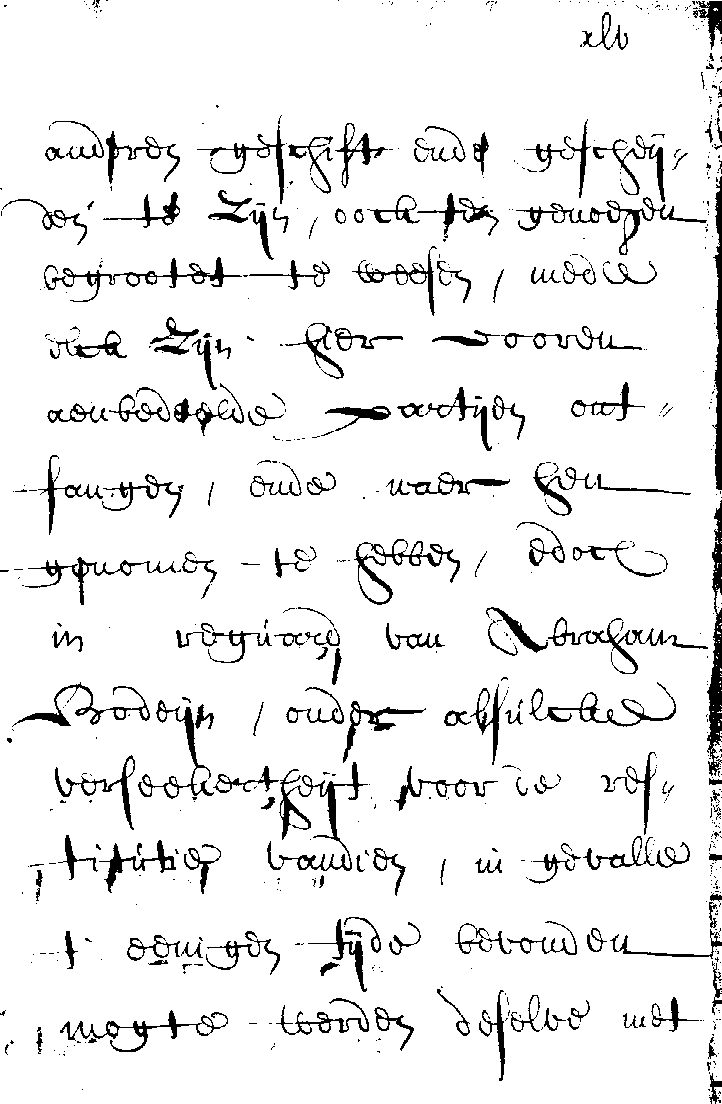 xlv
anderen geschift ende gescheij„
den te Zijn, oock ten genoegen
begrootet te weesen, mede
elck Zijn hier vooren
aenbedeelde partijen ont„
fangen, ende naer hen
genomen te hebben, edoch
in reguard van Abraham
Bodeijn, onder absulcke
verseekertheijt voor de res„
titutie vandien, in gevalle
t' eenigen tijde bevonden
mogte werden deselve met